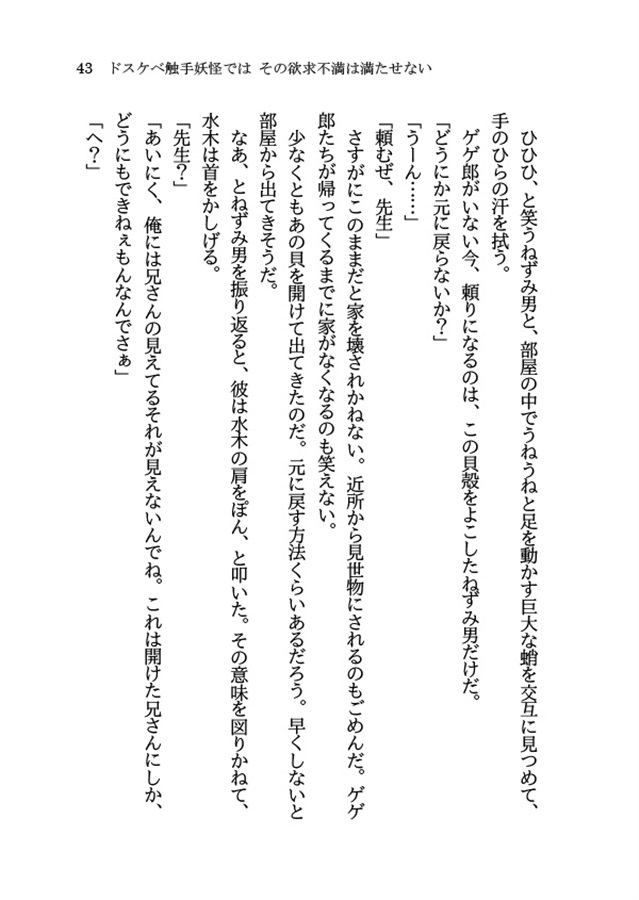 43　ドスケベ触手妖怪では その欲求不満は満たせない
　ひひひ、と笑うねずみ男と、部屋の中でうねうねと足を動かす巨大な蛸を交互に見つめて、
手のひらの汗を拭う。
　ゲゲ郎がいない今、頼りになるのは、この貝殻をよこしたねずみ男だけだ。
「どうにか元に戻らないか？」
「うーん……」
「頼むぜ、先生」
　さすがにこのままだと家を壊されかねない。近所から見世物にされるのもごめんだ。ゲゲ
郎たちが帰ってくるまでに家がなくなるのも笑えない。
　少なくともあの貝を開けて出てきたのだ。元に戻す方法くらいあるだろう。早くしないと
部屋から出てきそうだ。
　なあ、とねずみ男を振り返ると、彼は水木の肩をぽん、と叩いた。その意味を図りかねて、
水木は首をかしげる。
「先生？」
「あいにく、俺には兄さんの見えてるそれが見えないんでね。これは開けた兄さんにしか、
どうにもできねぇもんなんでさぁ」
「へ？」